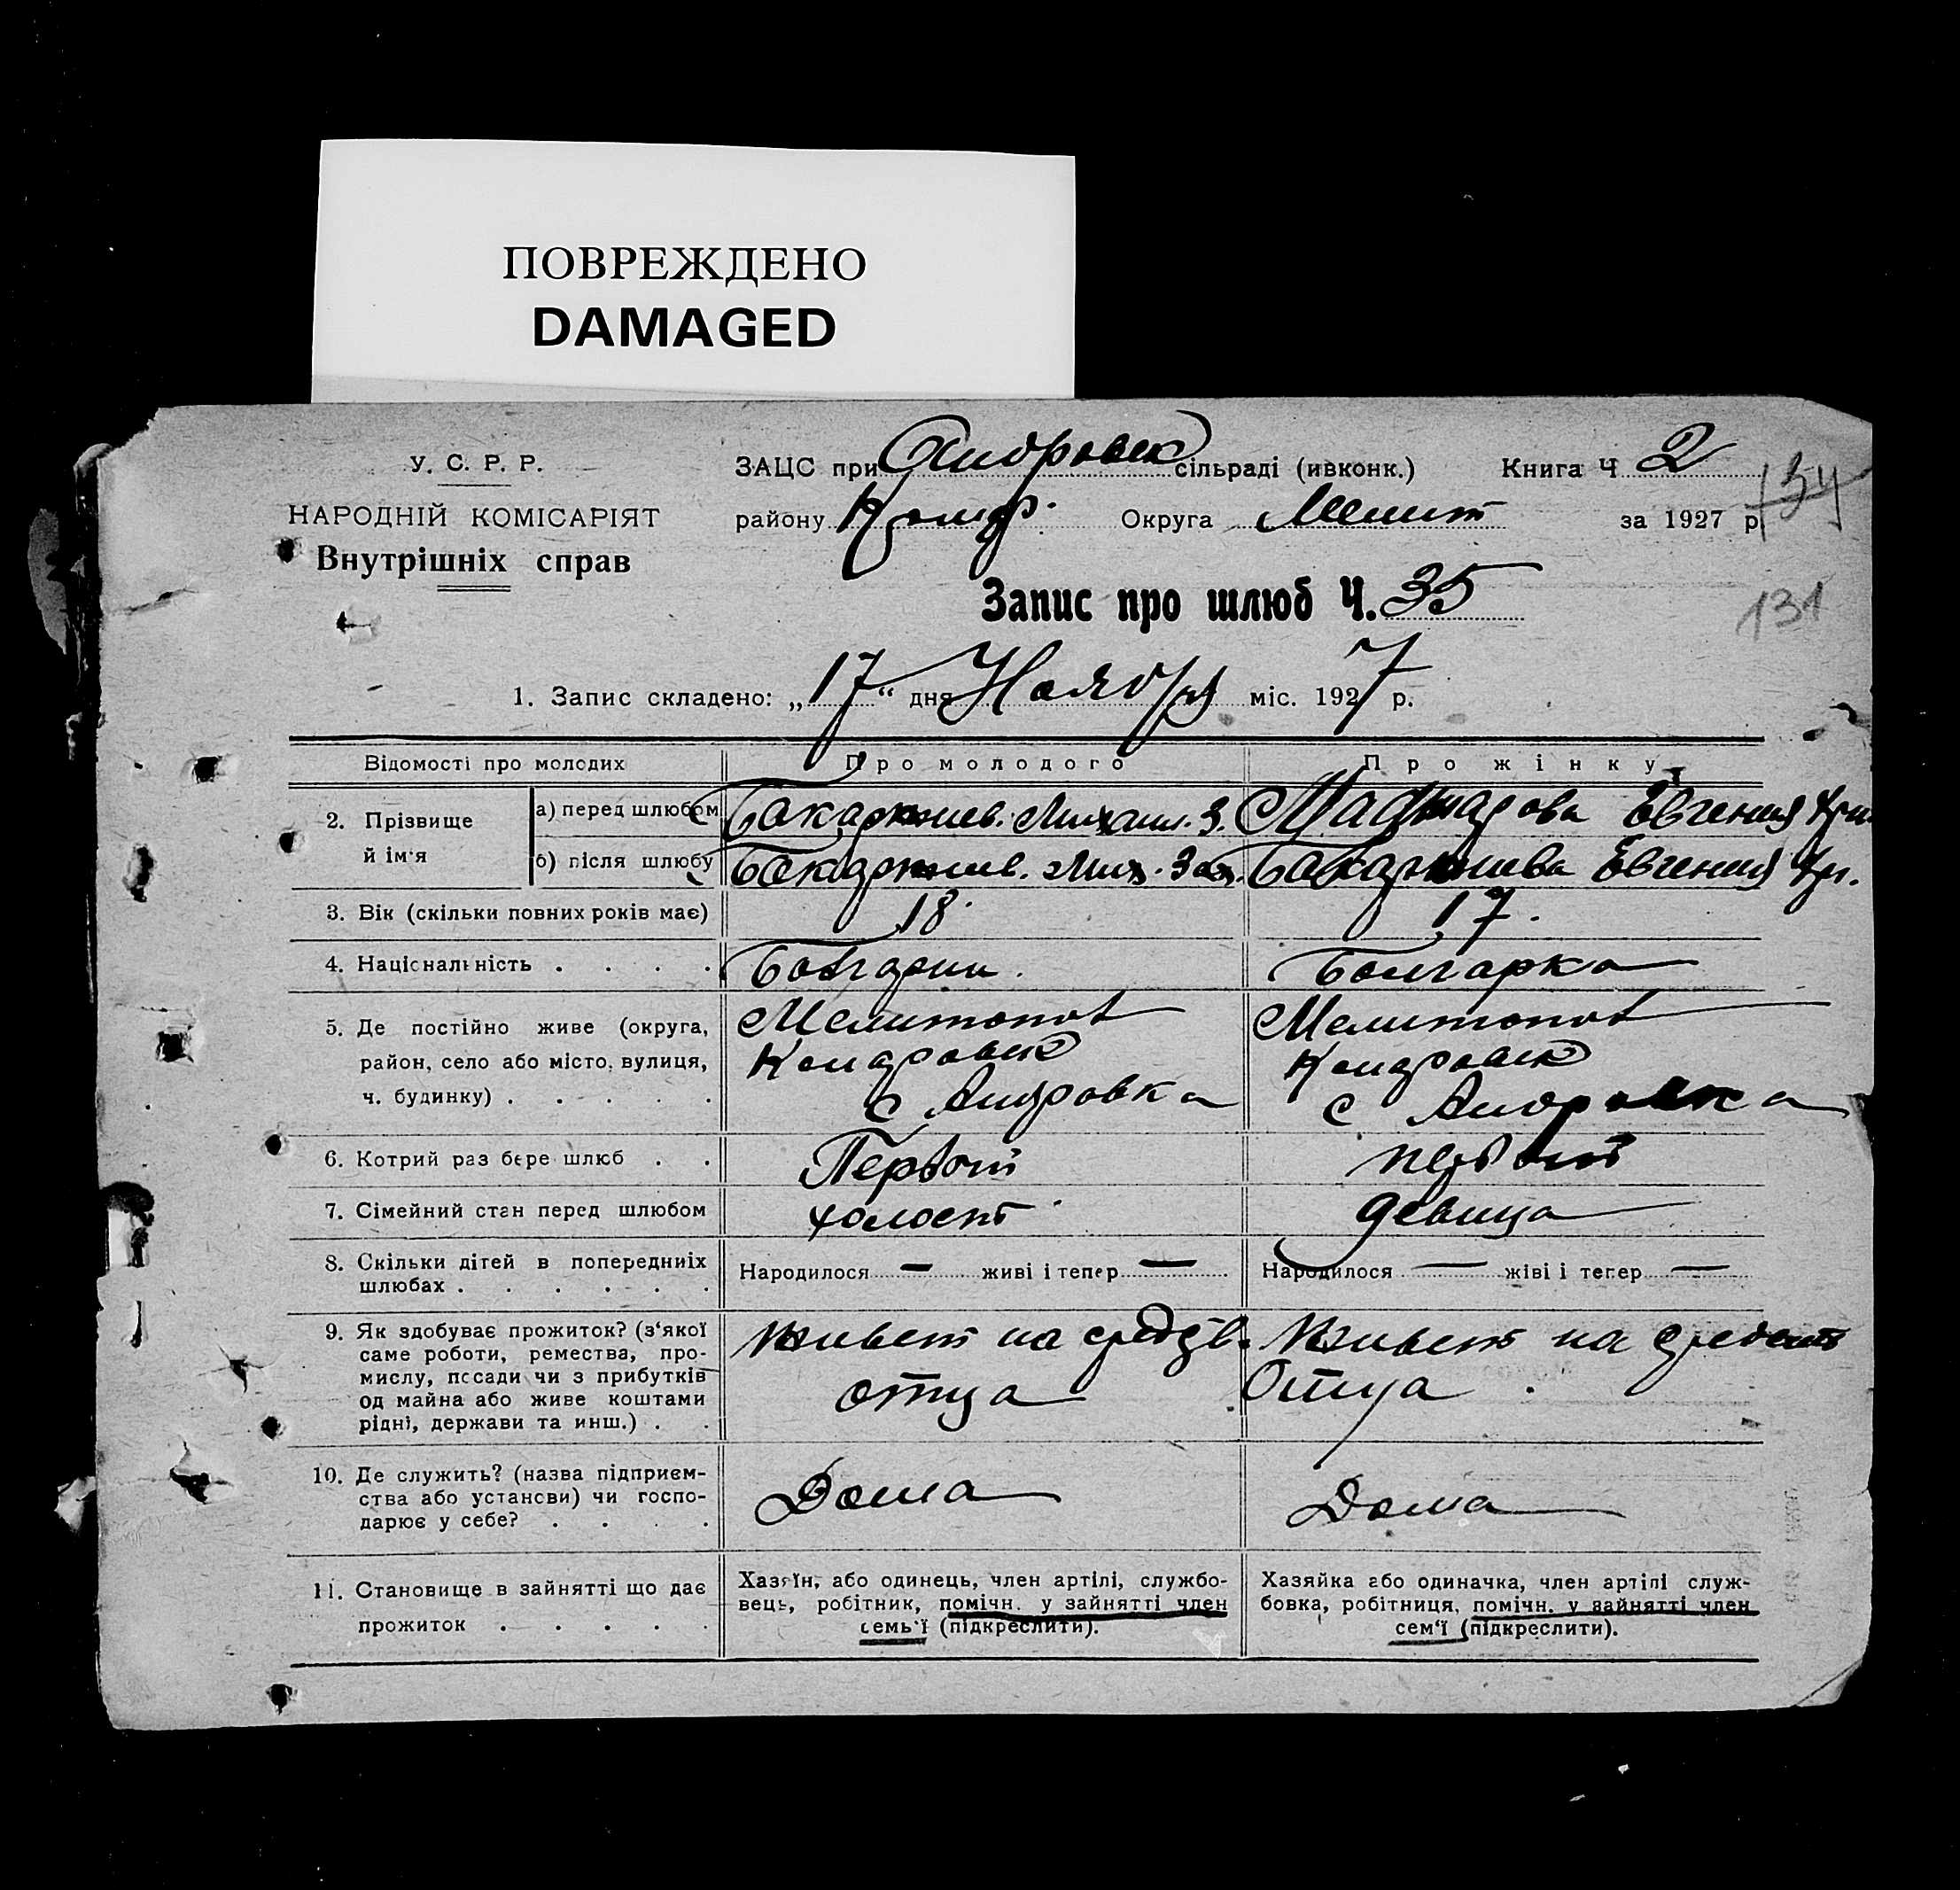 ПОВРЕЖДЕНО
DAMAGED
У. С. Р. Р.
НАРОДНІЙ КОМІСАРІЯТ
Внутрішніх справ
ЗАЦС при Андровск сільраді (ивконк.) Книга Ч 2
району Округа Мелит за 1927 р. 134
Запис про шлюб Ч. 35
131
1. Запис складено: „17“ дня Ноября міс. 1927 р.
Відомості про молодих Про молодого Про жінку
2. Прізвище й ім‘я
а) перед шлюбом Бакаржиев. Михаил. З. Евгения Хри.
б) після шлюбу Бакаржиев. Мих. Зах. Бакаржиева Евгения Хр.
3. Вік (скільки повних років має) 18. 17.
4. Національність . . . . Болгарин. Болгарка
5. Де постійно живе (округа, Мелитопол Мелитопол
район, село або місто, вулиця, Кондровск Кондровск
ч. будинку) . . . . . с Андровка с Андровка
6. Котрий раз бере шлюб . . Первый первый
7. Сімейний стан перед шлюбом холост девица
8. Скільки дітей в попередниіх Народилося — живі і тепер — Народилося — жіві і тепер —
шлюбах . . . . . .
9. Як здобуває прожиток? (з‘якої Живет на средств. Живет на средства
саме роботи, ремества, про- отца Отца.
мислу, посади чи з прибутків
од майна або живе коштами
рідні, держави та инш.) . .
10. Де служить? (назва підприєм- Дома Дома
ства або установи) чи госпо-
дарює у себе? . . . .
11. Становище в зайнятті що дає
прожиток . . . . .
Хазяїн, або одинець, член артілі, службо-
вець, робітник, помічн. у зайнятті член
семь‘ї (підкреслити).
Хазяйка або одиначка, член артілі служ-
бовка, робітниця, помічн. у зайнятті член
сем‘ї (підкреслити).